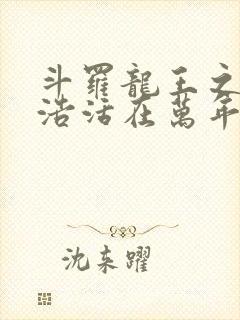 斗羅龍王之
浩活在萬年
沈来躍